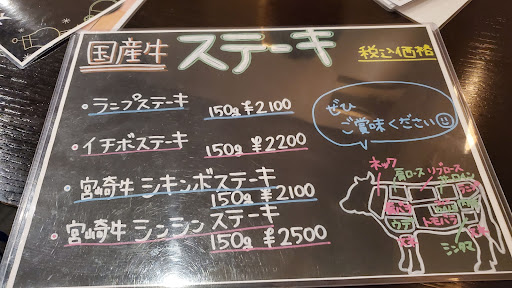 国産牛 ステーキ 税込価格
・ランプステーキ 150g ¥2100
・イチボステーキ 150g ¥2200
・宮崎牛 シキンボステーキ
150g ¥2100
・宮崎牛 シンシンステーキ
150g ¥2500
ぜひ
ご賞味ください
ネック
肩ロース
リブロース
サーロイン
ウデ
トモバラ
シンタマ